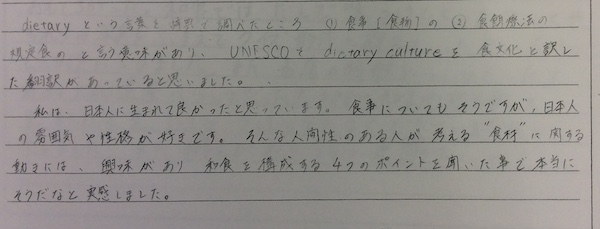 dietary という言葉を辞書で調べたところ (1) 食事[食物]の (2) 食餌療法の
規定食の と言う意味があり、UNESCOで dietary culture を 食文化と訳し
た翻訳があっていると思いました。
私は、日本人に生まれて良かったと思っています。食事についてもそうですが、日本人
の雰囲気や性格が好きです。そんな人間性のある人が 考える "食材" に関する
動きには、興味があり 和食を構成する4つのポイントを聞いた事で本当に
そうだなと実感しました。